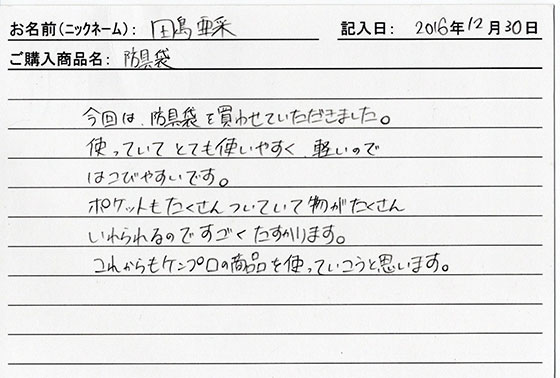 お名前(ニックネーム): 田島亜采 記入日: 2016年12月30日
ご購入商品名: 防具袋
今回は、防具袋を買わせていただきました。
使っていてとても使いやすく、軽いので
はこびやすいです。
ポケットもたくさんついていて物がたくさん
いれられるのですごくたすかります。
これからもケンプロの商品を使っていこうと思います。